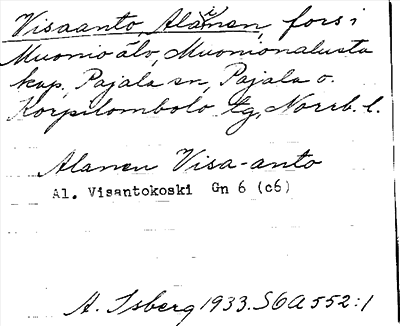 Visaanto, Alainen, fors i
Muonio älv, Muonionalusta
kap. Pajala sn, Pajala o.
Korpilombolo tg, Norrb. l.
Alanen Visa-anto
Al. Visantokoski Gn 6 (c6)
A. Isberg 1933. SOA 552:1